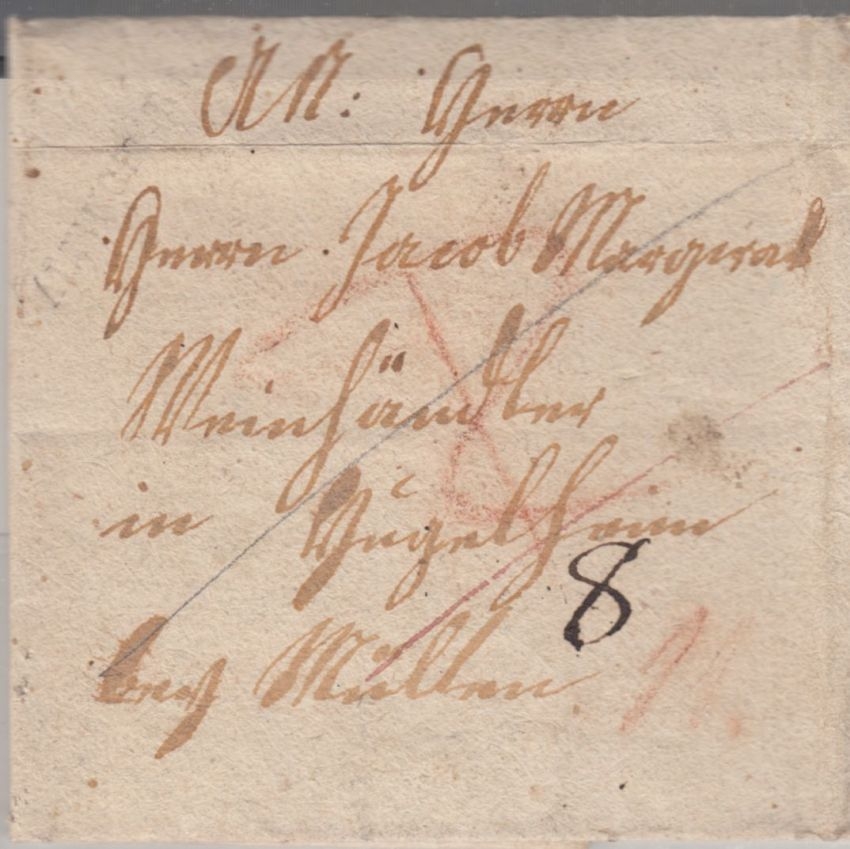 AN: Herrn
Herrn Jacob Margirat
Weinhändler
in Hügelheim
8
bey Müllen